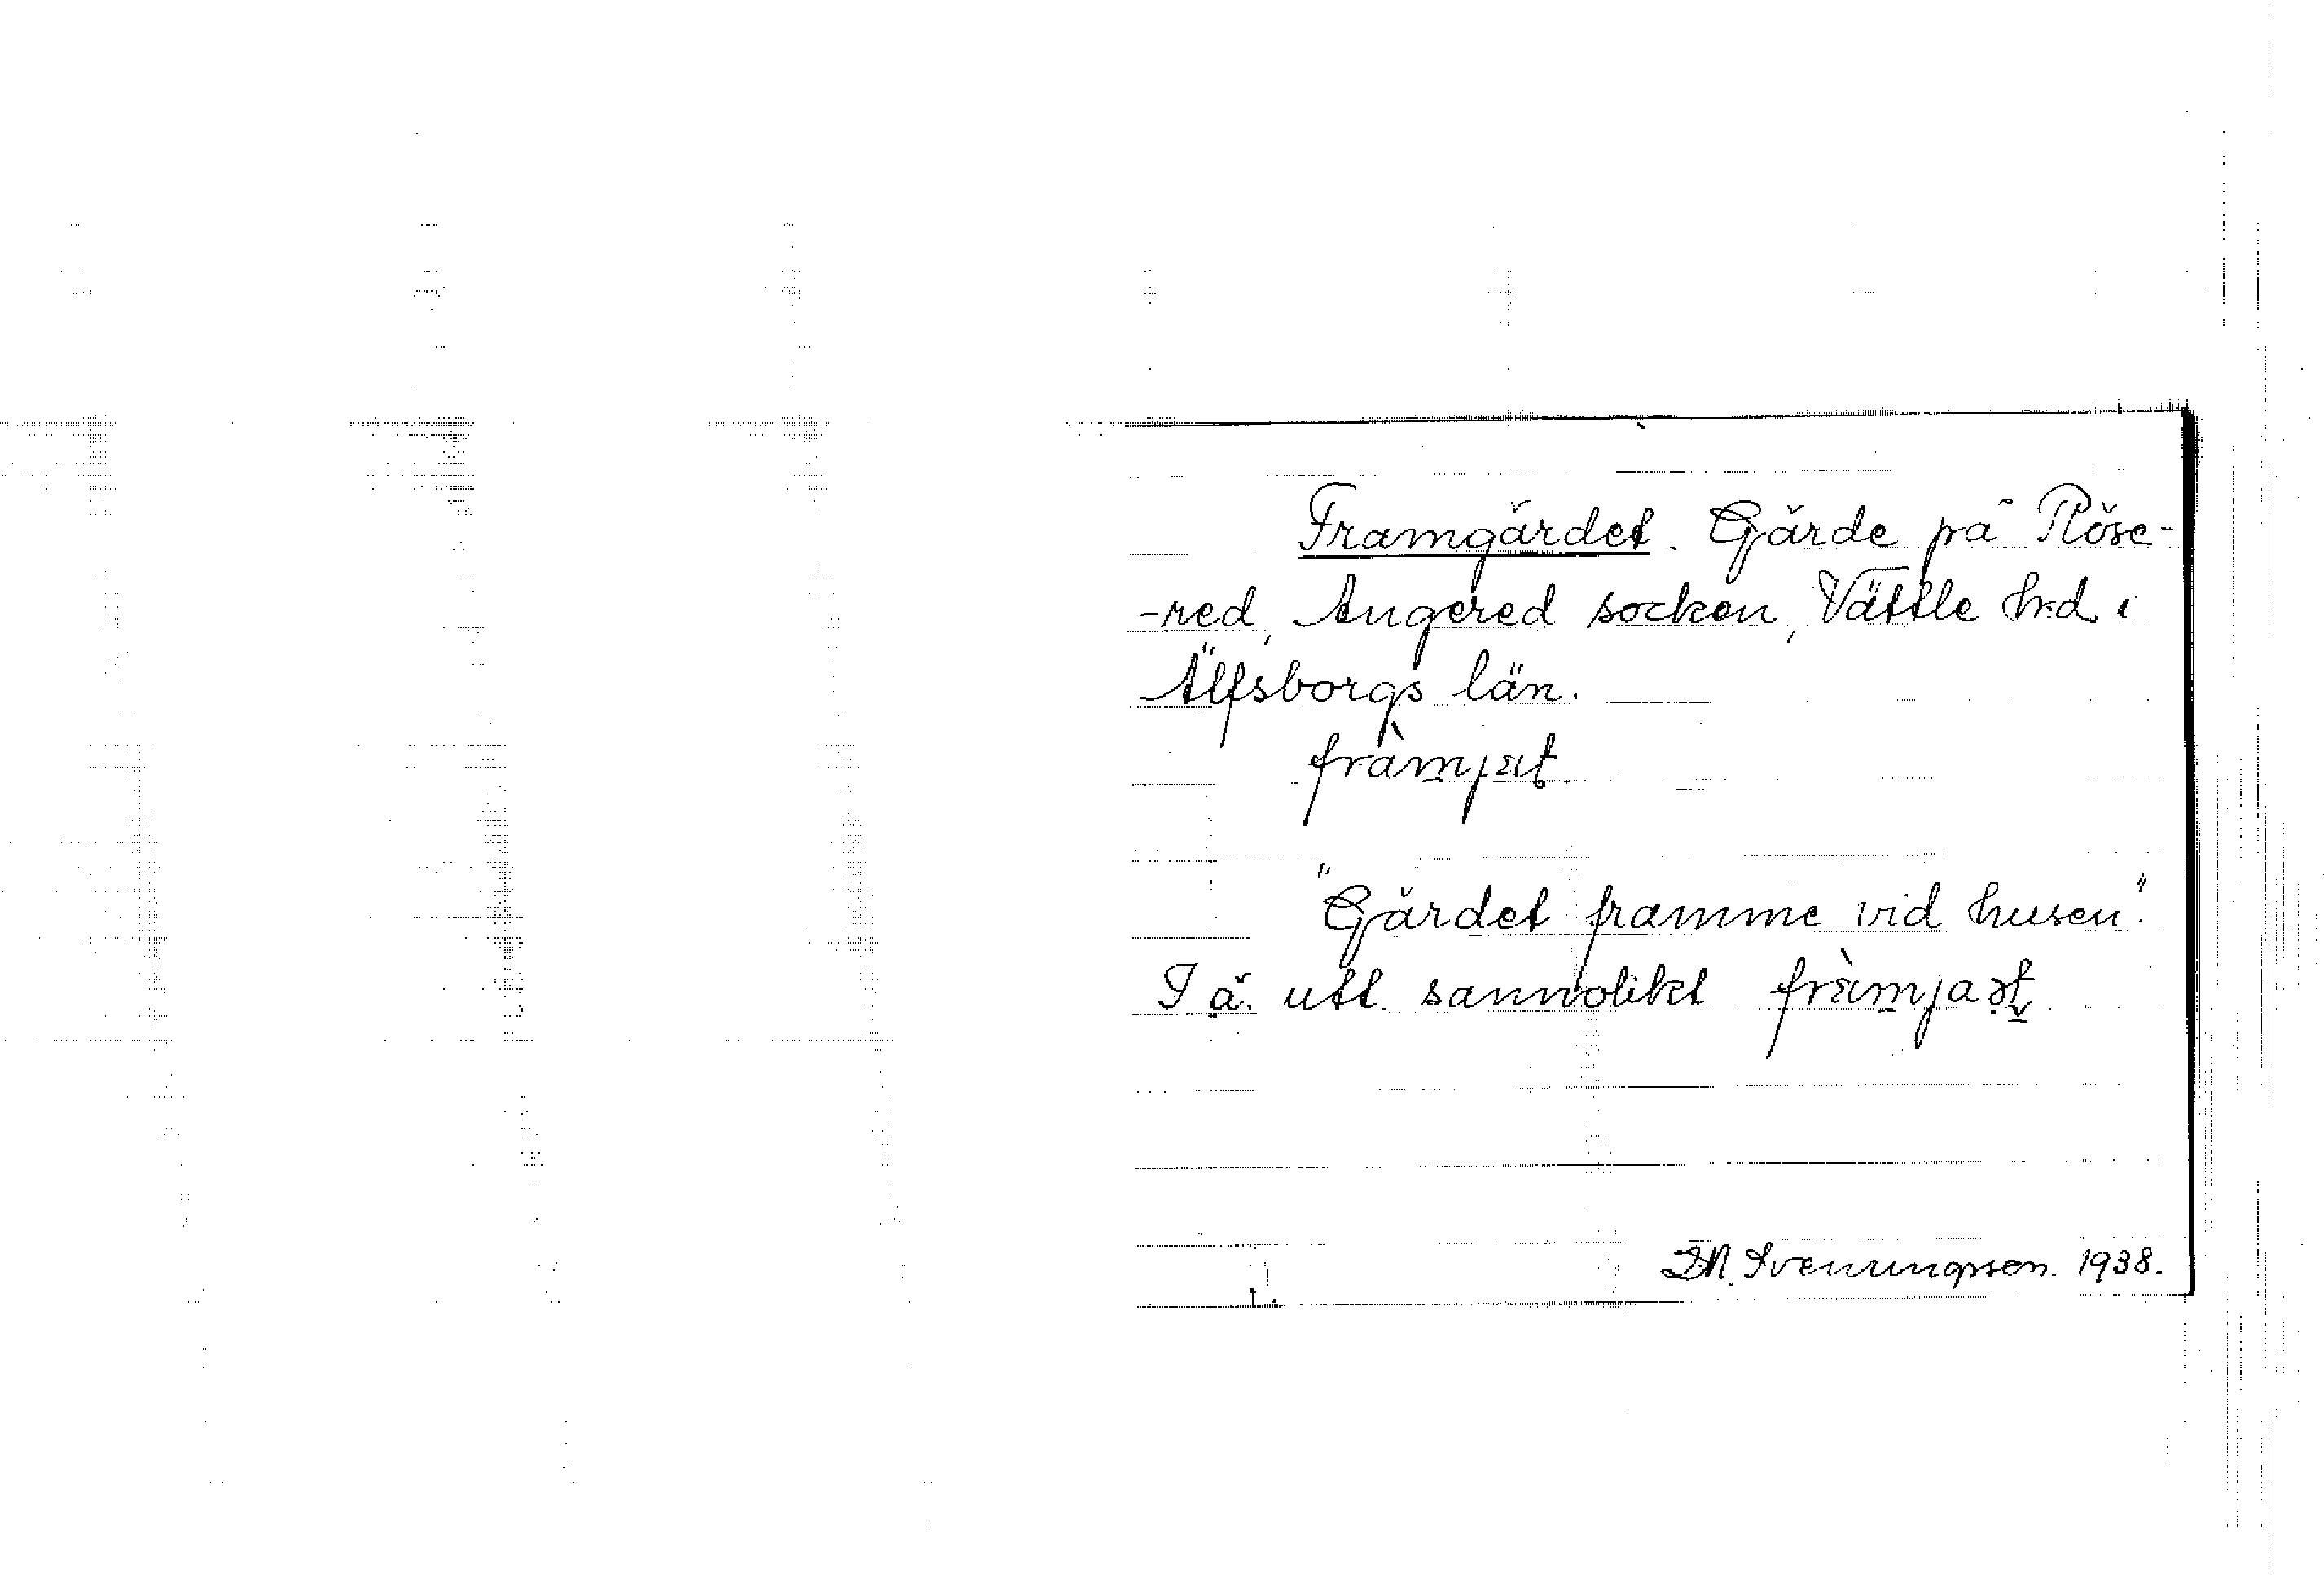 Framgärdet. Gärde på Röse-
-red, Angered socken, Vättle h.d i
Älfsborgs län.
fràmjæt
"Gärdet framme vid husen."
I ä. utt. sannolikt fràmjaət.
Svenningsson. 1938.